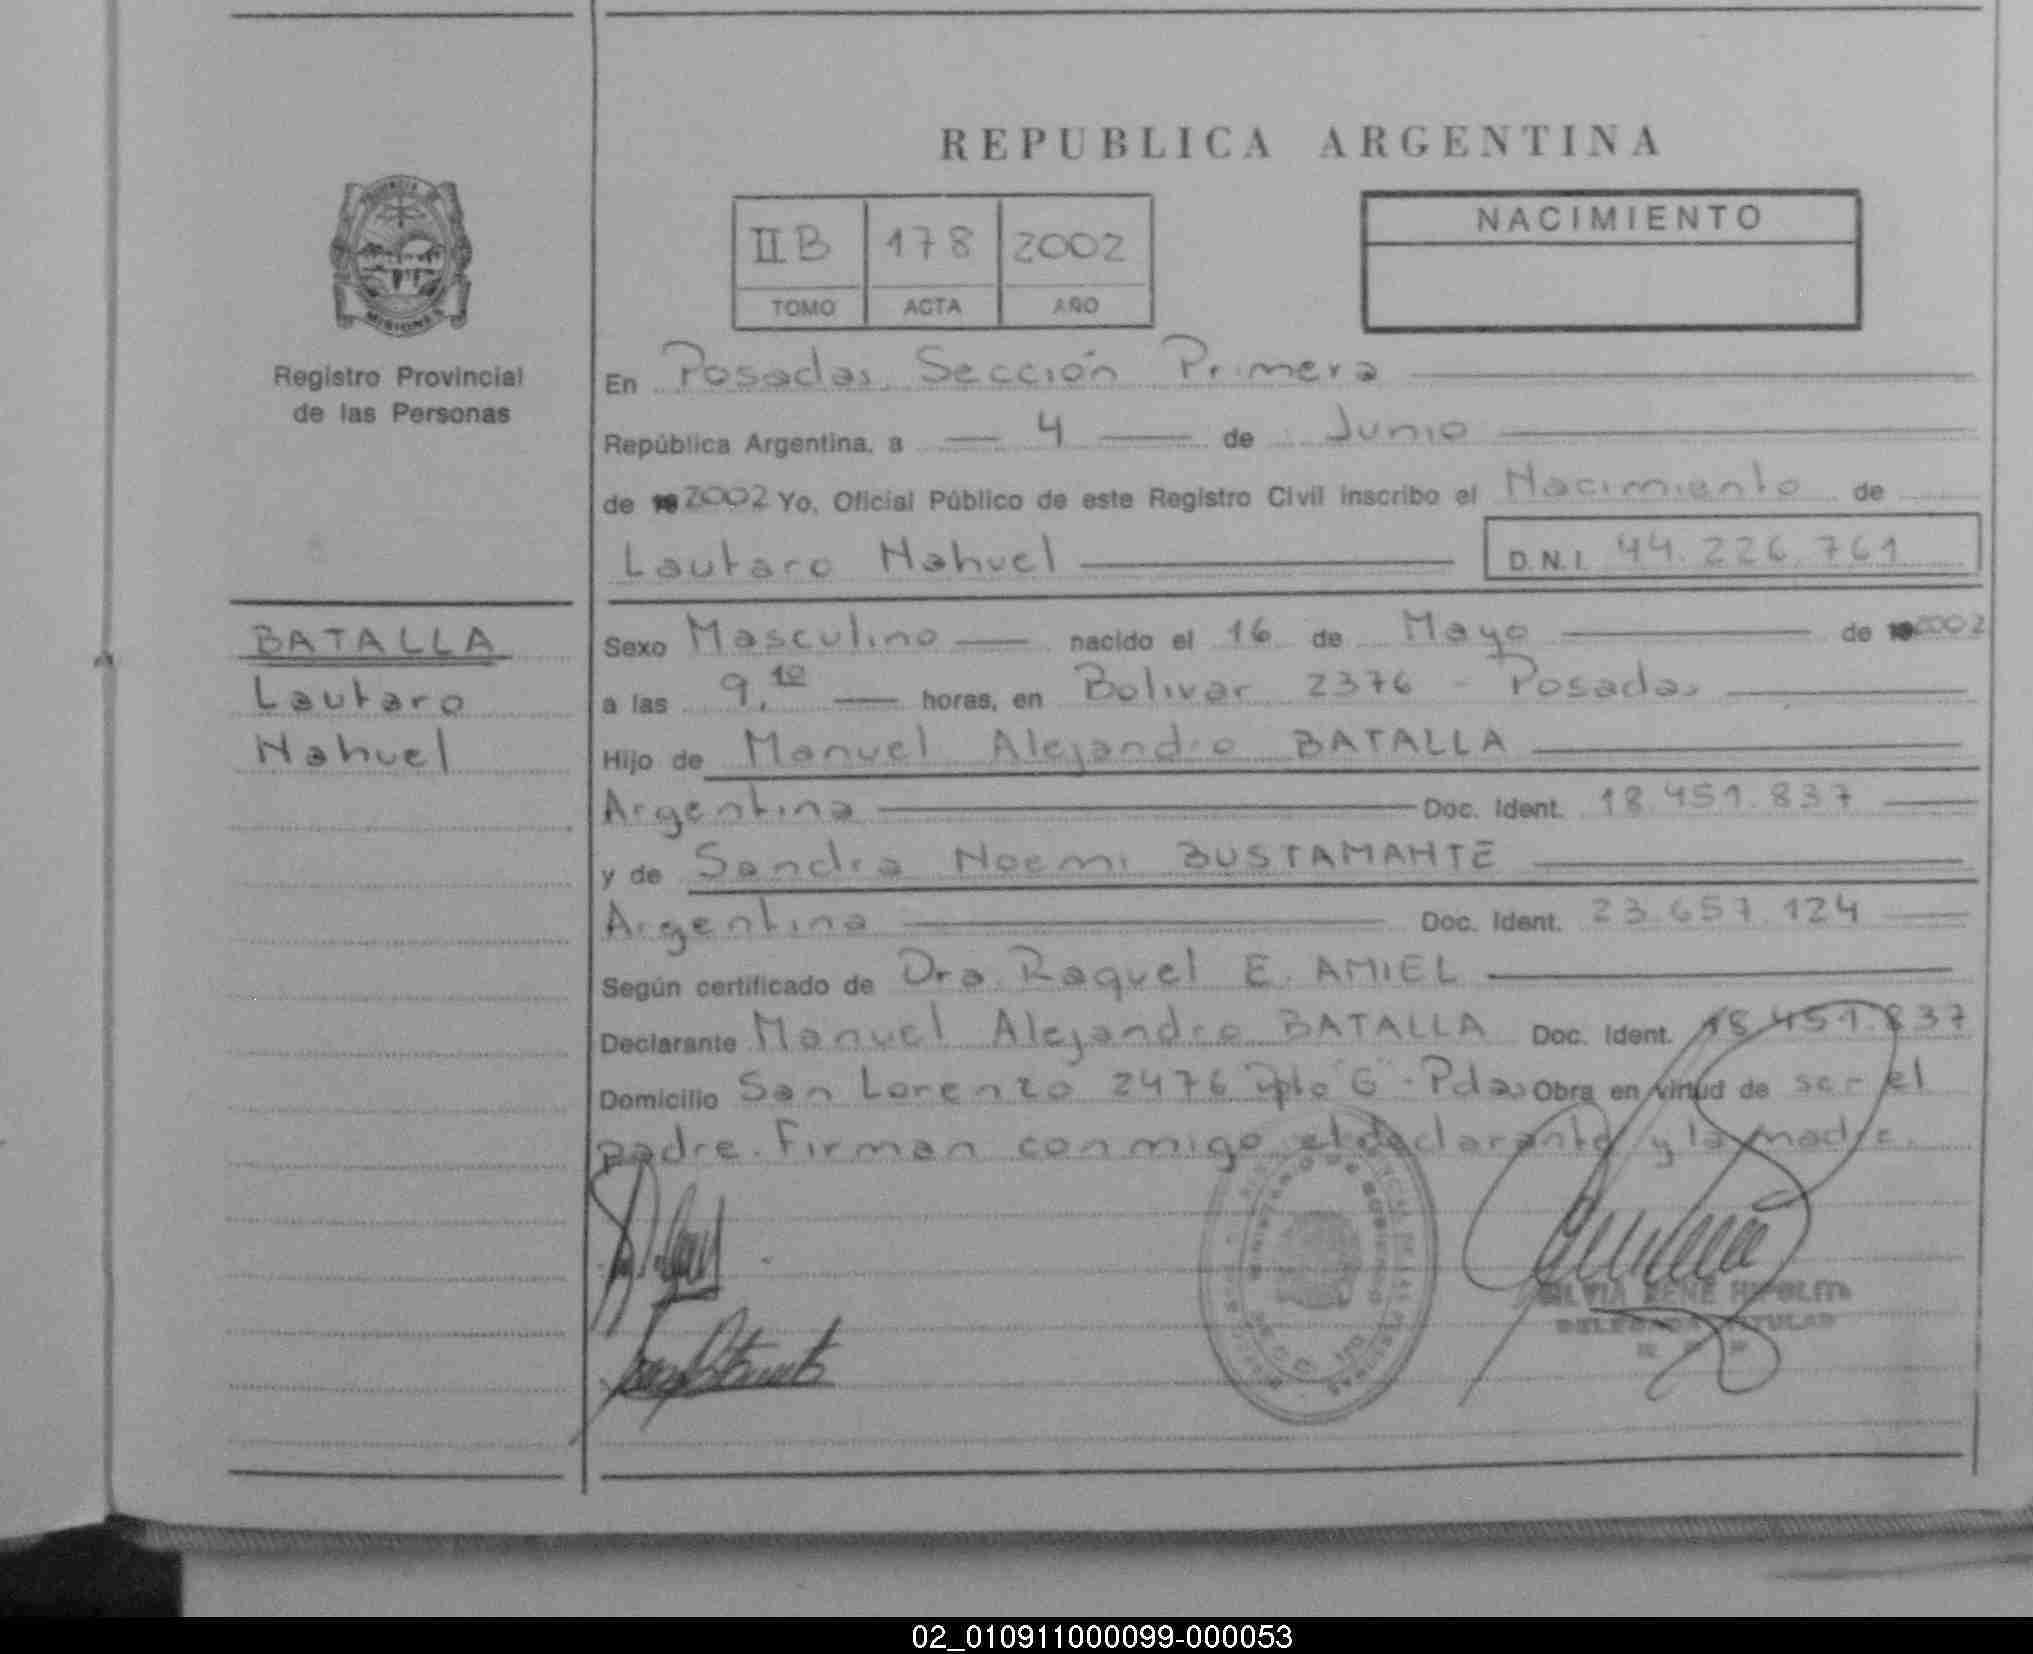 REPUBLICA ARGENTINA
II B 178 2002
TOMO ACTA AÑO
NACIMIENTO
MISIONES
Registro Provincial
de las Personas
En Posadas Sección Primera
República Argentina, a 4 de Junio
de 2002 Yo, Oficial Público de este Registro Civil inscribo el Nacimiento de
Lautaro Nahuel D.N.I. 44.226.761
BATALLA
Lautaro
Nahuel
Sexo Masculino nacido el 16 de Mayo de 2002
a las 9,10 horas, en Bolivar 2376 - Posadas
Hijo de Manuel Alejandro BATALLA
Argentina Doc. Ident. 18.451.837
y de Sandra Noemi BUSTAMANTE
Argentina Doc. Ident. 23.657.124
Según certificado de Dra. Raquel E. AMIEL
Declarante Manuel Alejandro BATALLA Doc. Ident. 18.451.837
Domicilio San Lorenzo 2476 Dpto "G" - Pdas Obra en virtud de ser el
padre. Firman conmigo el declarante y la madre.
SILVIA RENE HIPOLITO
DELEGADA TITULAR
02_010911000099-000053